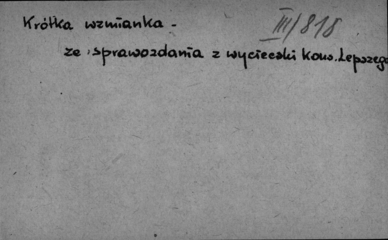 Krótka wzmianka -
III/818
ze sprawozdania z wycieczki kons. Lepszego